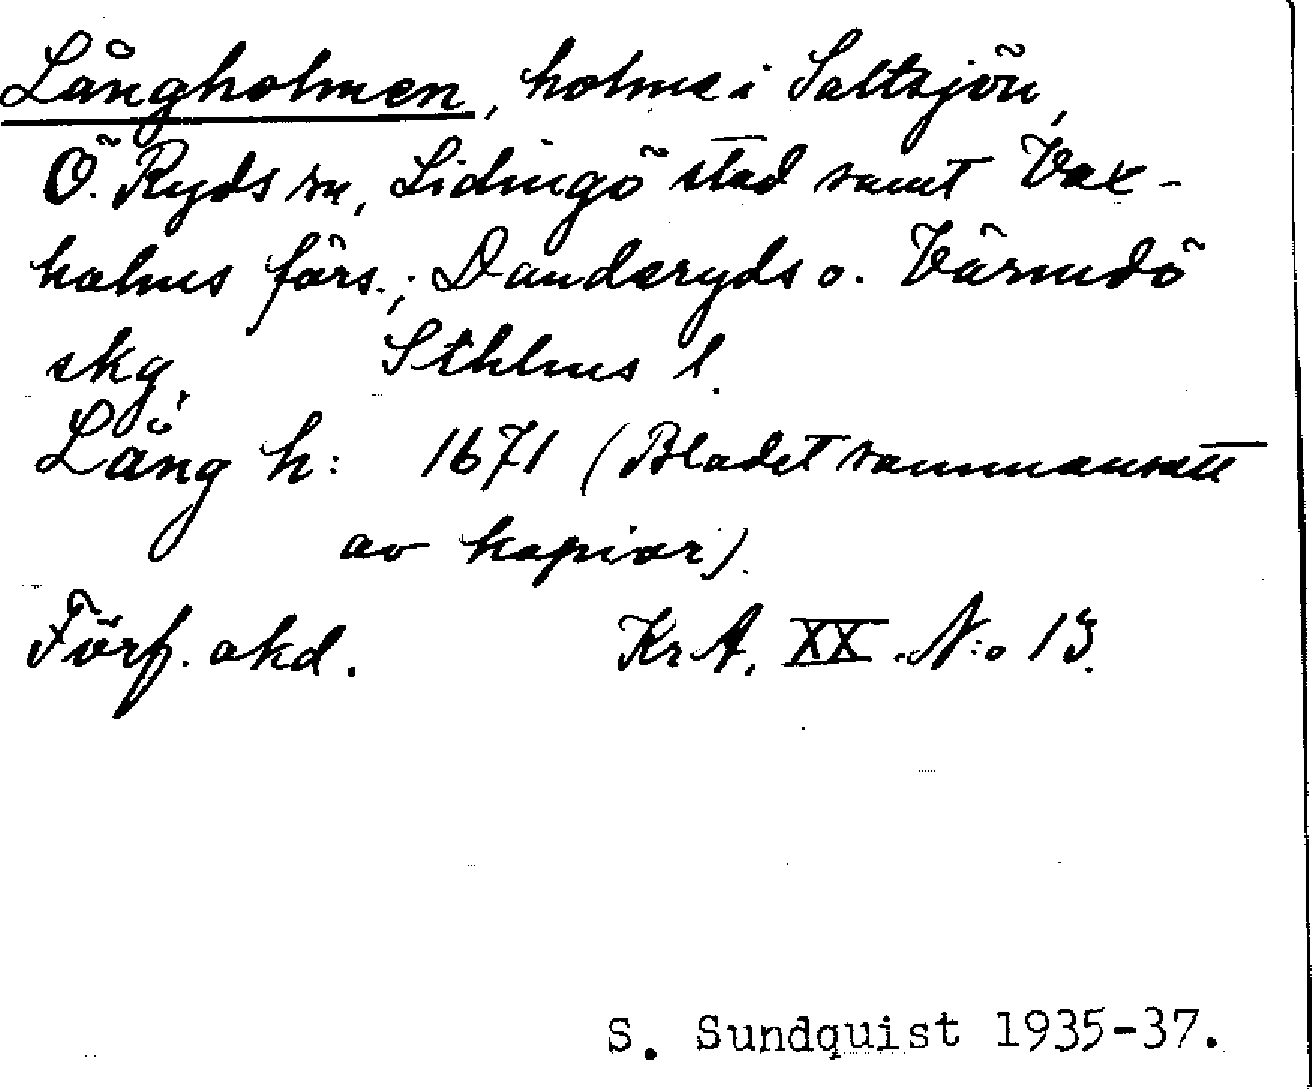 Långholmen, holme i Saltsjön,
Ö. Ryds sn, Lidingö stad samt Vax-
holms förs.; Danderyds o. Värmdö
skg. Sthlms l.
Lång h: 1671 (Bladet sammansatt
av kopior).
Förf. okd. KrA. XX. N:o 13.
S. Sundquist 1935-37.